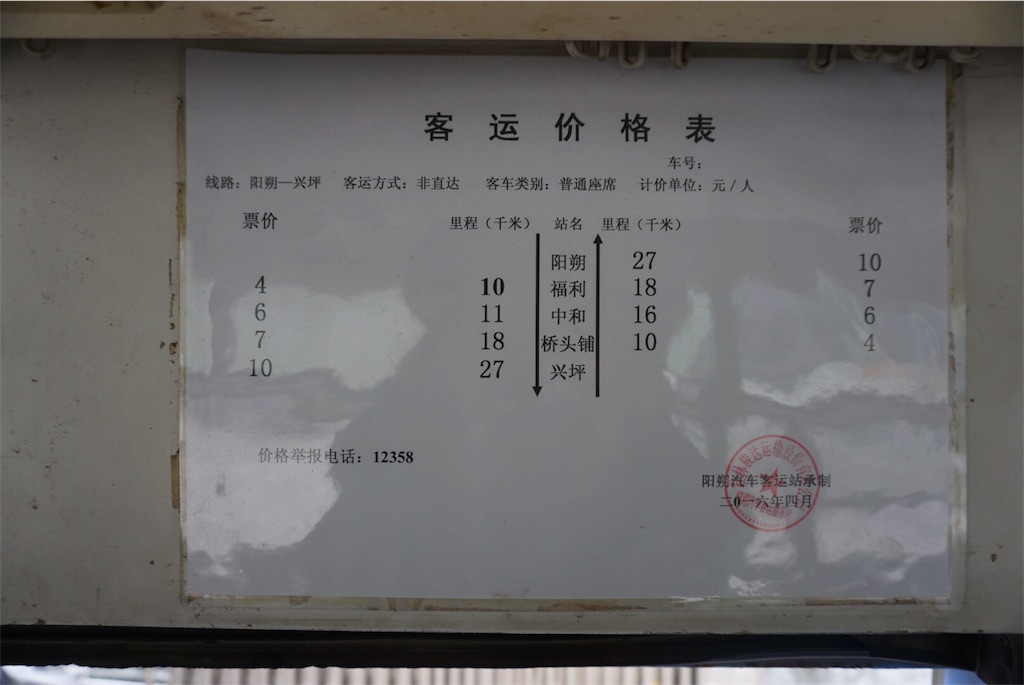 客运价格表
车号：
线路：阳朔—兴坪 客运方式：非直达 客车类别：普通座席 计价单位：元／人
票价 里程（千米） 站名 里程（千米） 票价
阳朔 27 10
4 10 福利 18 7
6 11 中和 16 6
7 18 桥头铺 10 4
10 27 兴坪
价格举报电话：12358
阳朔汽车客运站承制
二0一六年四月